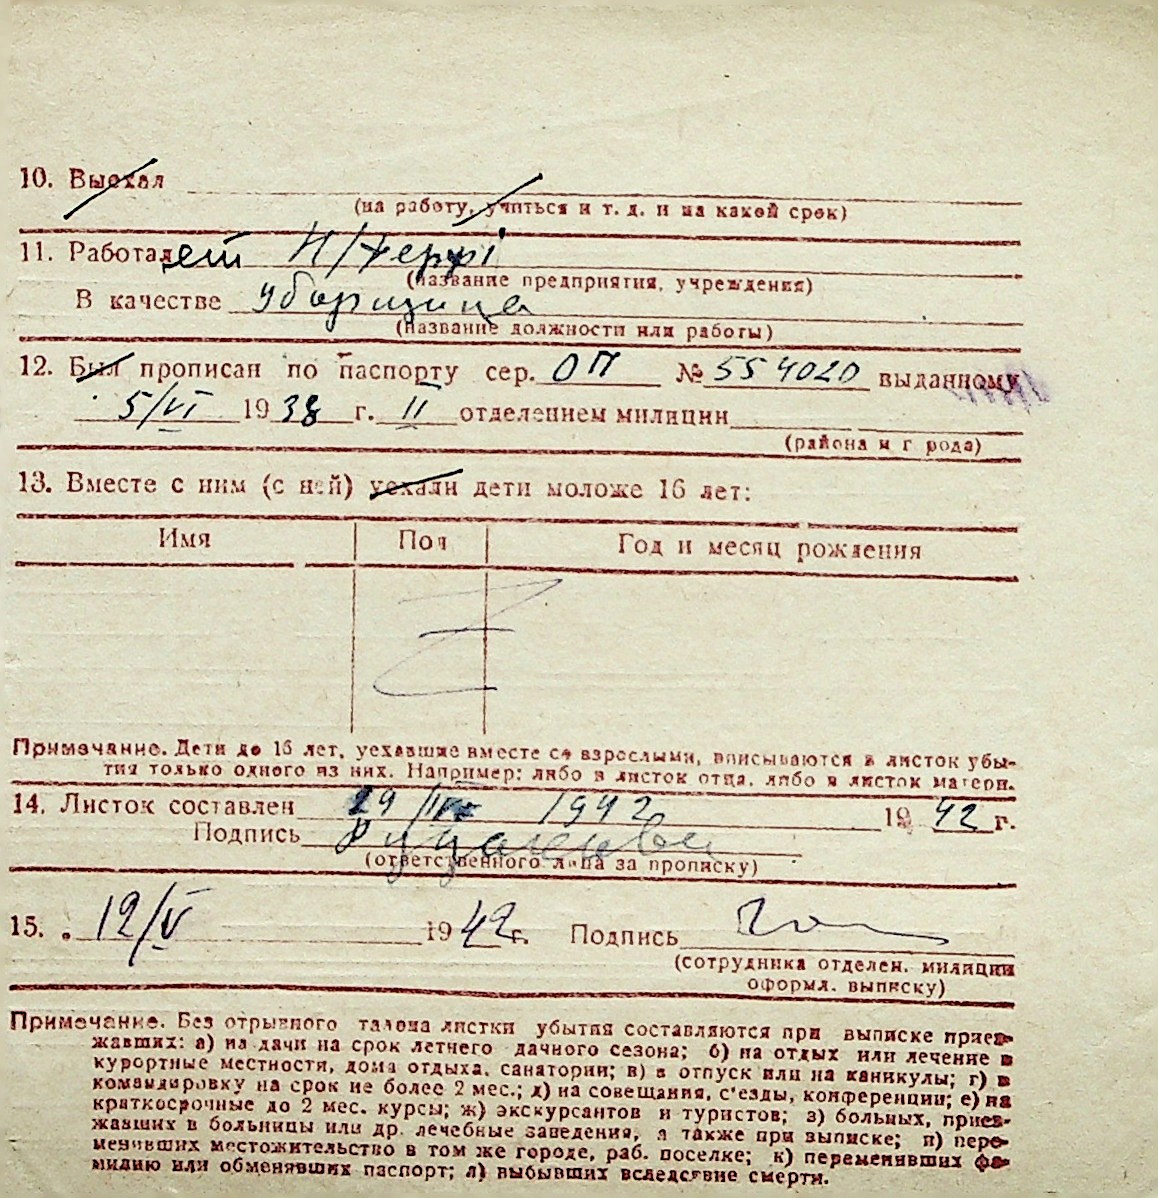 10. Выехал
(на работу, учиться и т. д. и на какой срок)
11. Работает
(название предприятия, учреждения)
В качестве уборщица
(название должности или работы)
12. Был прописан по паспорту сер. ОП № 554020 выданному
5/VI 1938 г. II отделением милиции
(района и г рода)
13. Вместе с ним (с ней) уехали дети моложе 16 лет:
Имя Пол Год и месяц рождения
Z
Примечание. Дети до 16 лет, уехавшие вместе со взрослыми, вписываются в листок убы-
тия только одного из них. Например: либо в листок отца, либо в листок матери.
14. Листок составлен 29/IV 1942 1942 г.
Подпись
(ответственного лица за прописку)
15. 12/V 1942 г. Подпись
(сотрудника отделен. милиции
оформл. выписку)
Примечание. Без отрывного талона листки убытия составляются при выписке приез-
жавших: а) на дачи на срок летнего дачного сезона; б) на отдых или лечение в
курортные местности, дома отдыха, санатории; в) в отпуск или на каникулы; г) в
командировку на срок не более 2 мес.; д) на совещания, с'езды, конференции; е) на
краткосрочные до 2 мес. курсы; ж) экскурсантов и туристов; з) больных, приез-
жавших в больницы или др. лечебные заведения, а также при выписке; и) пере-
менивших местожительство в том же городе, раб. поселке; к) переменивших фа-
милию или обменявших паспорт; л) выбывших вследствие смерти.